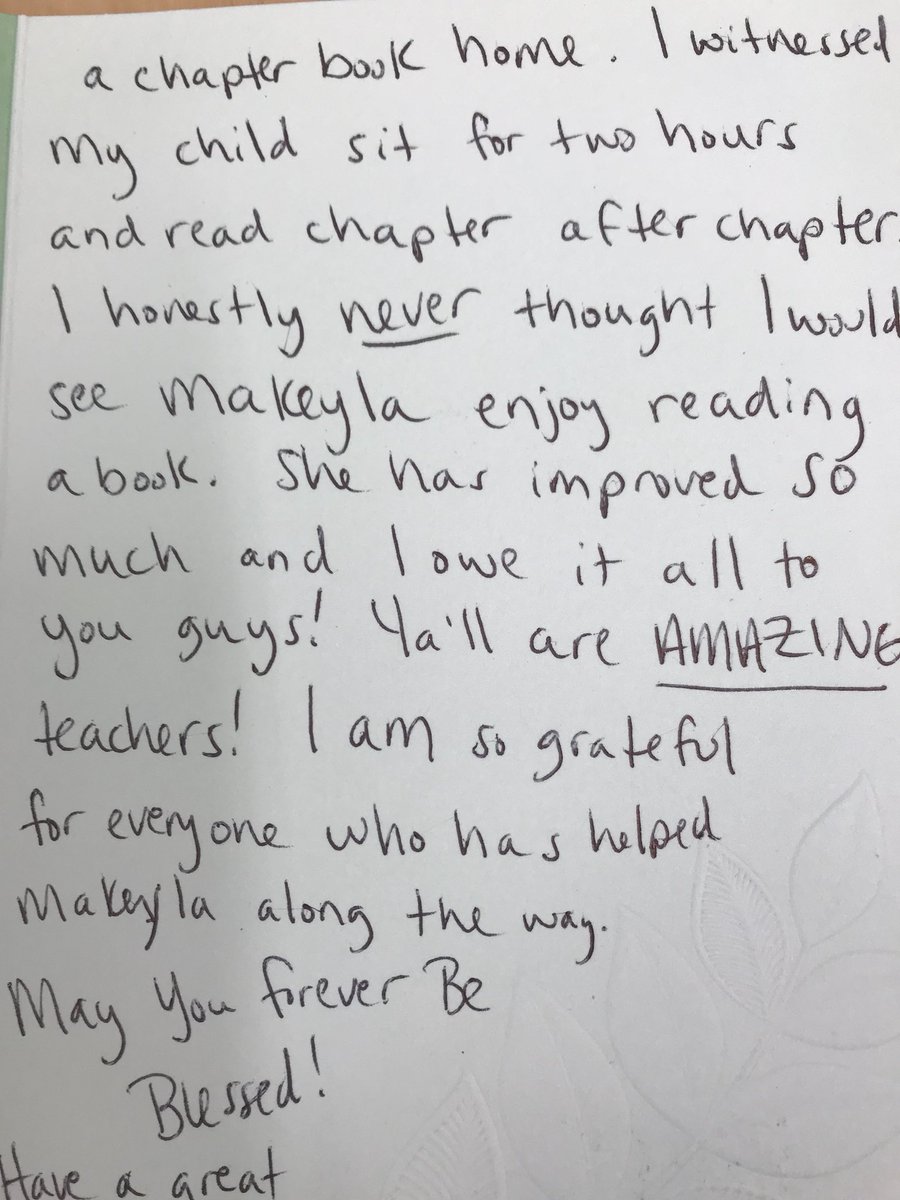 a chapter book home. I witnessed
my child sit for two hours
and read chapter after chapter.
I honestly never thought I would
see Makeyla enjoy reading
a book. She has improved so
much and I owe it all to
you guys! Ya'll are AMAZING
teachers! I am so grateful
for everyone who has helped
Makeyla along the way.
May You forever Be
Blessed!
Have a great